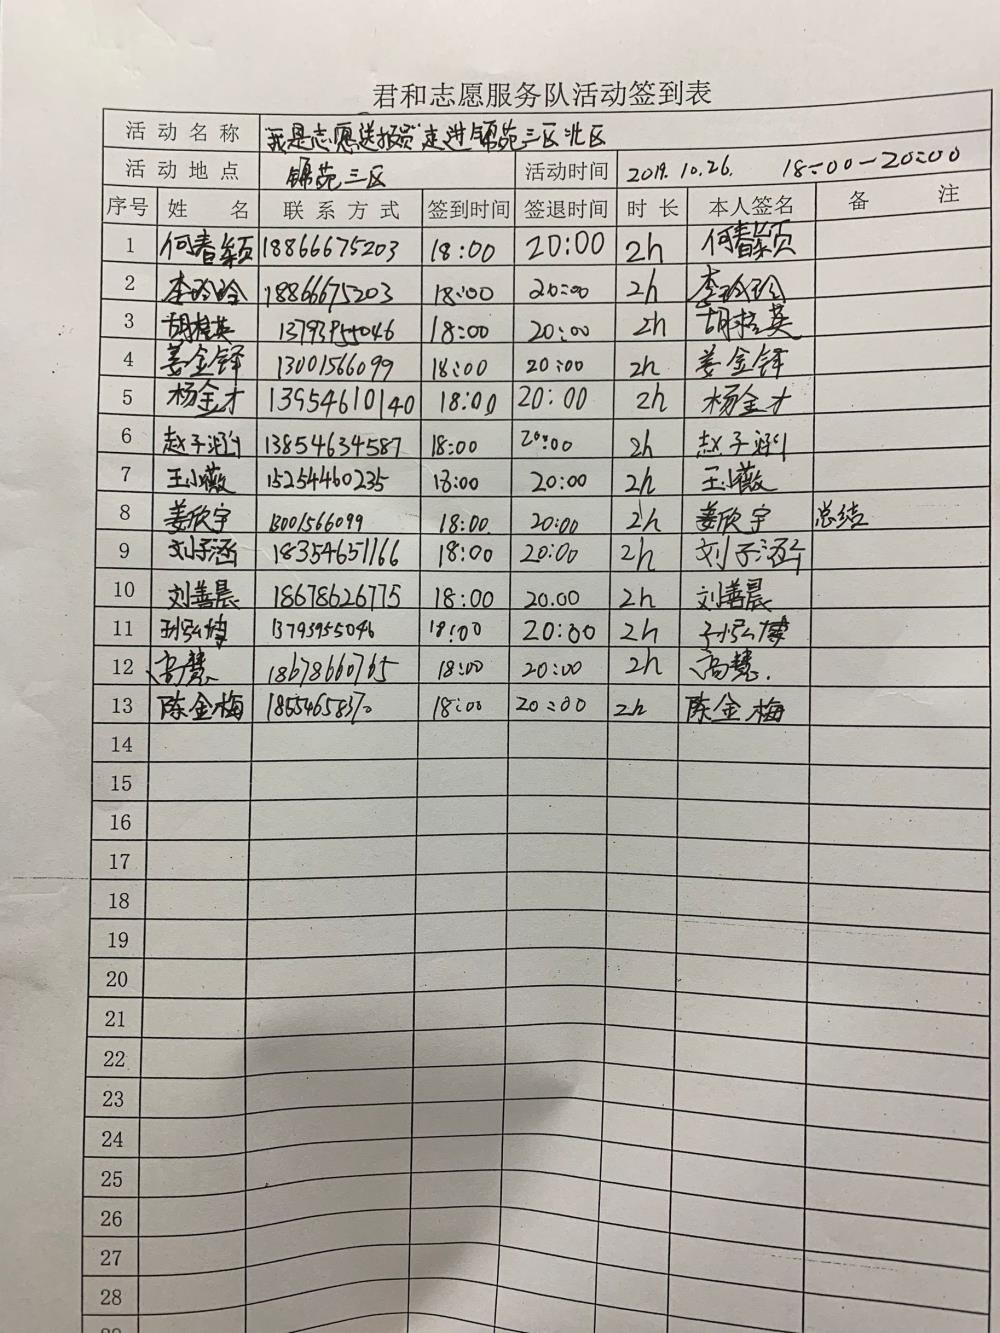 君和志愿服务队活动签到表
活动名称 "我是志愿送报员"走进锦苑三区北区
活动地点 锦苑三区 活动时间 2019.10.26. 18:00-20:00
序号 姓名 联系方式 签到时间 签退时间 时长 本人签名 备注
1 何春颖 18866675203 18:00 20:00 2h 何春颖
2 李玲玲 18866675203 18:00 20:00 2h 李玲玲
3 胡桂英 13793955046 18:00 20:00 2h 胡桂英
4 姜金铎 13001566099 18:00 20:00 2h 姜金铎
5 杨金才 13954610140 18:00 20:00 2h 杨金才
6 赵子涵 13854634587 18:00 20:00 2h 赵子涵
7 王小薇 15254460235 18:00 20:00 2h 王小薇
8 姜欣宇 13001566099 18:00 20:00 2h 姜欣宇 总结
9 刘子涵 18354651166 18:00 20:00 2h 刘子涵
10 刘善晨 18678626775 18:00 20.00 2h 刘善晨
11 孙弘博 13793955046 18:00 20:00 2h 孙弘博
12 高慧 18678660765 18:00 20:00 2h 高慧.
13 陈金梅 18:00 20:00 2h 陈金梅
14
15
16
17
18
19
20
21
22
23
24
25
26
27
28